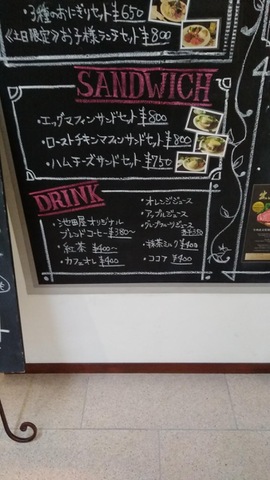 ・3種のおにぎりセット ¥650
《土日限定》お子様ランチセット ¥800
SANDWICH
・エッグマフィンサンドセット ¥800
・ローストチキンマフィンサンドセット ¥800
・ハムチーズサンドセット ¥750
DRINK
・池田屋オリジナル
ブレンドコーヒー ¥380〜
・紅茶 ¥400〜
・カフェオレ ¥400
・オレンジジュース
・アップルジュース
・グレープフルーツジュース
各¥350
・抹茶ミルク ¥400
・ココア ¥400